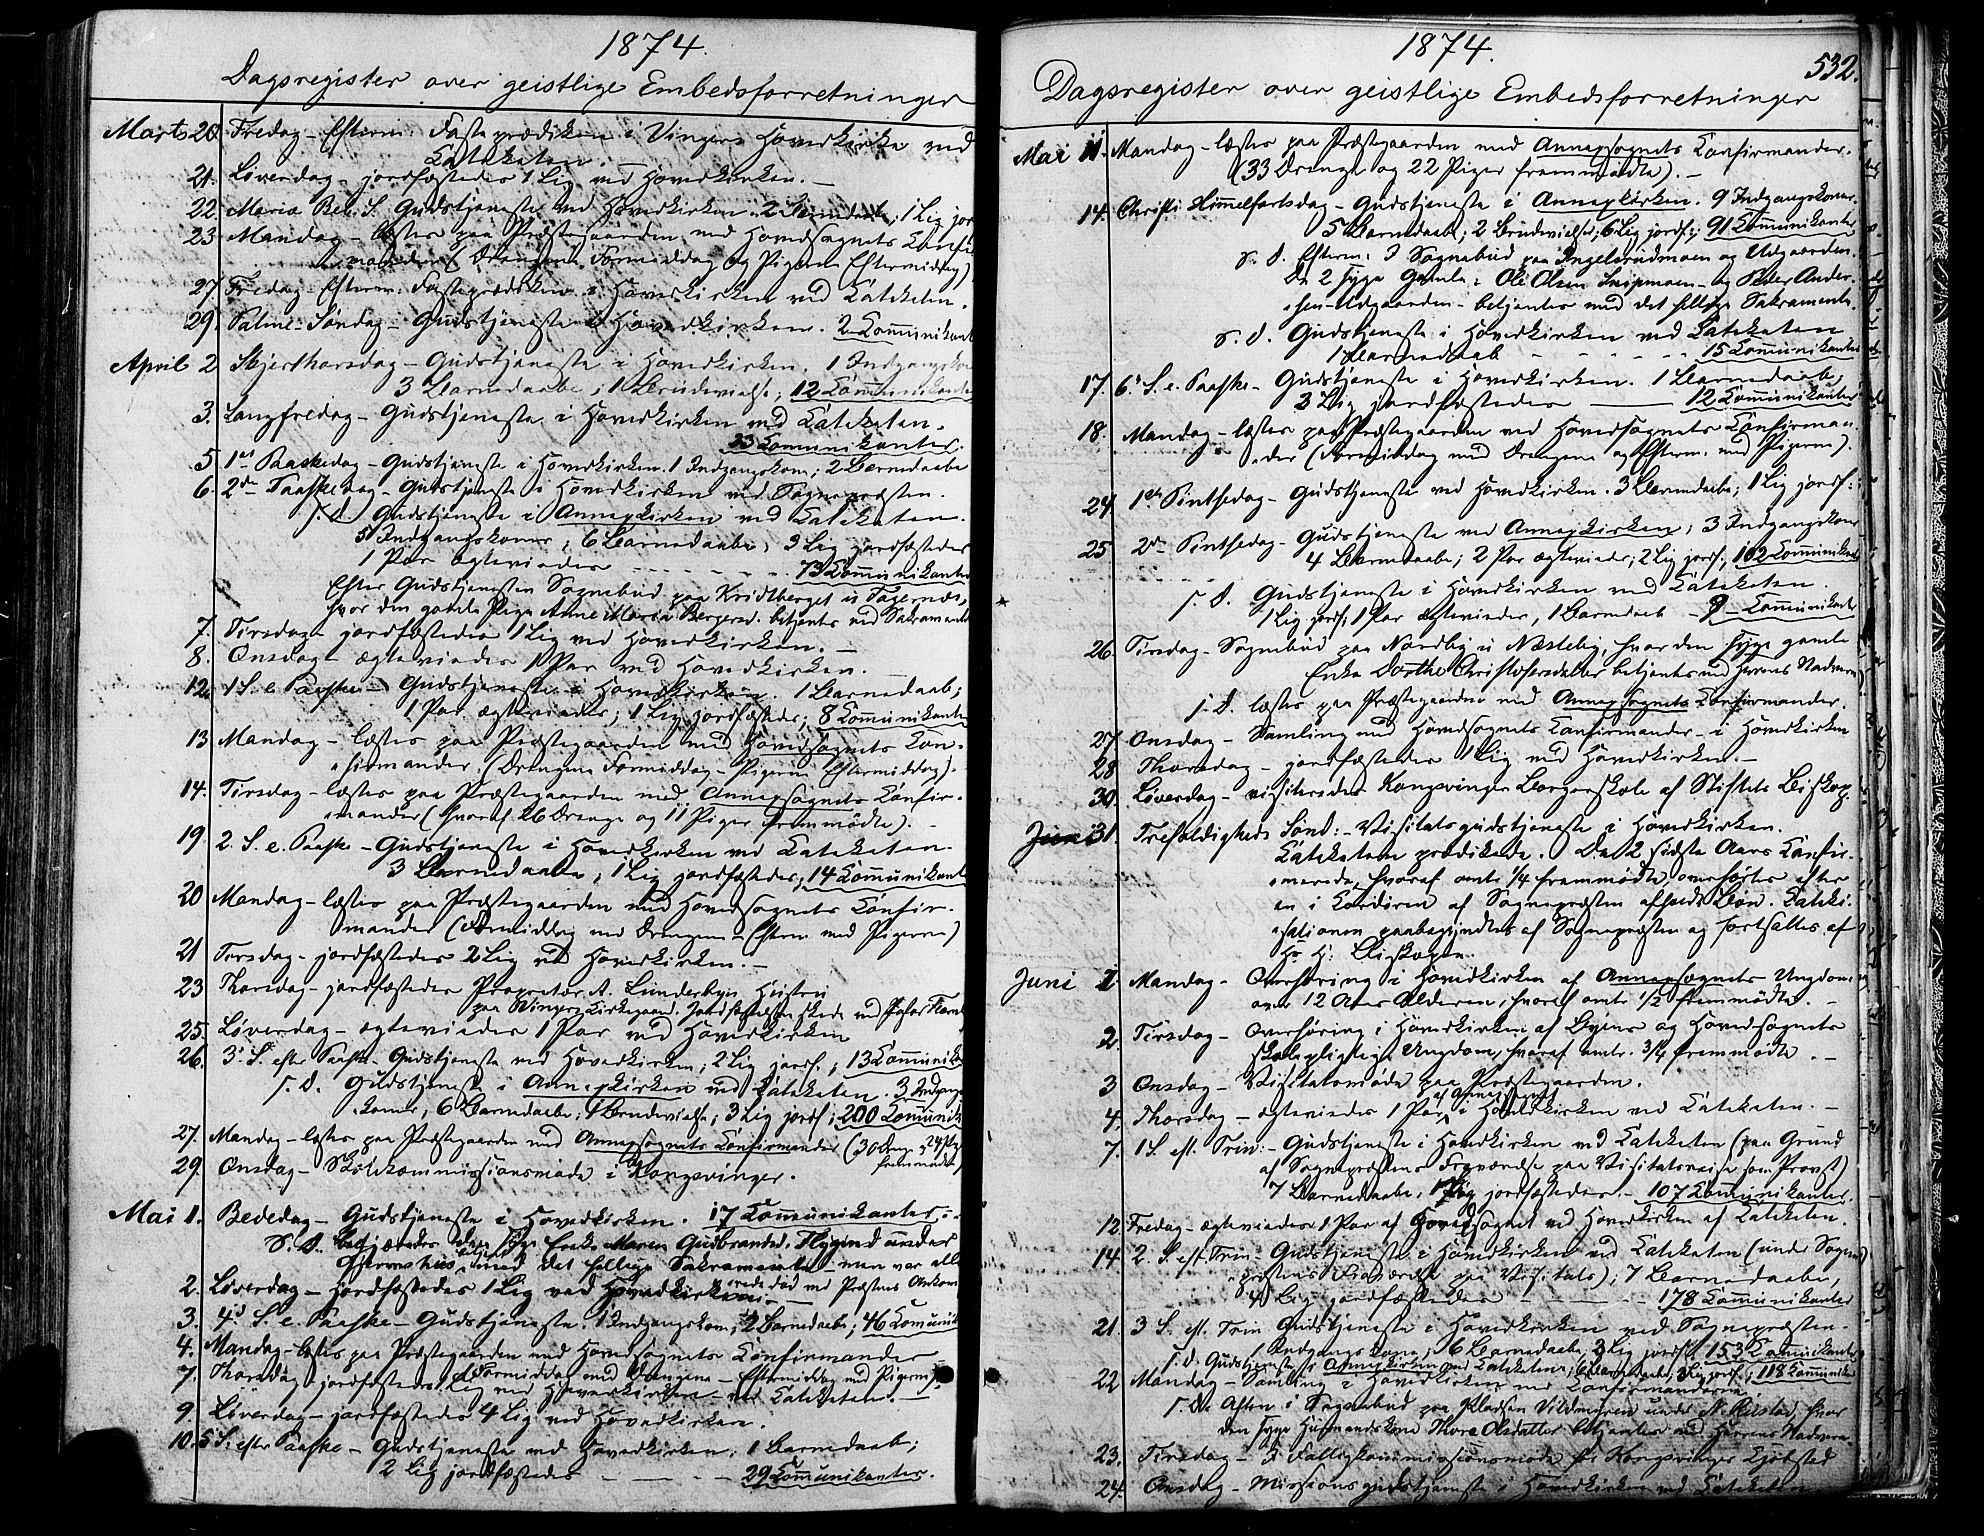 1874.
Dagsregister over geistlige Embedsforretninger
Marts 20. Fredag – Efterm: Fasteprædiken i Vingers Hovedkirke ved
Catecheten. –
21. Løverdag – jordfæstedes 1 Lig ved Hovedkirken. –
22. Mariæ Beb. D. Gudstjeneste ved Hovedkirken. 2 Barnedaabe, 1 Lig jor
23 Mandag – læstes paa Præstegaarden med Hovedsognets Confir
manden (Drengene Formiddag og Pigerne Eftermiddag)
27. Fredag – Efterm. Fasteprædiken i Hovedkirken ved Catecheten.
29. Palme-Søndag – Gudstjeneste i Hovedkirken. 2 Communikant
April 2 Skjærthorsdag – Gudstjeneste i Hovedkirken. 1 Indgangsko
3 Barnedaabe; 1 Brudevielse; 12 Communikante
3. Langfredag – Gudstjeneste i Hovedkirken ved Catecheten.
23 Communikanter.
5 1ste Paaskedag – Gudstjeneste i Hovedkirken. 1 Indgangskone; 2 Barnedaabe
6. 2den Paaskedag – Gudstjeneste i Hovedkirken ved Sognepræsten.
s. D. Gudstjeneste i Annexkirken ved Catecheten.
5 Indgangskoner; 6 Barnedaabe; 3 Lig jordfæstedes
1 Par ægteviedes – – – 73 Communikanter
Efter Gudstjenesten Sognebud paa Kridtberget u: Tagernæs,
hvor den gamle Pige Anne Maria Bergersd. betjentes ved Sakrament
7. Tirsdag – jordfæstedes 1 Lig ved Hovedkirken. –
8. Onsdag – ægteviedes 1 Par ved Hovedkirken.
12. 1 S. e. Paaske – Gudstjeneste i Hovedkirken. 1 Barnedaab;
1 Par ægteviedes; 1 Lig jordfæstedes; 8 Communikanter
13 Mandag – læstes paa Præstegaarden med Hovedsognets Con-
firmander (Drengene Formiddag – Pigerne Eftermiddag).
14. Tirsdag – læstes paa Præstegaarden med Annexsognets Confir-
mander (hvoraf 26 Drenge og 11 Piger fremmødte). –
19 2. S. e. Paaske – Gudstjeneste i Hovedkirken ved Catecheten.
3 Barnedaabe; 1 Lig jordfæstedes; 14 Communikant
20 Mandag – læstes paa Præstegaarden med Hovedsognets Confir-
mander (Formiddag med Drengene – Efterm. med Pigerne)
21 Tirsdag – jordfæstedes 2 Lig ved Hovedkirken. –
23 Thorsdag – jordfæstedes Proprietær A. Lunderbyes Hustru
paa Vingers Kirkegaard. Jordfæstelsen skede ved
25. Løverdag – ægteviedes 1 Par ved Hovedkirken
26. 3. S. efter Paaske. Gudstjeneste ved Hovedkirken; 2 Lig jordf.; 13 Communika
s. D. Gudstjeneste i Annexkirken ved Catecheten. 3 Indgangs
koner; 6 Barnedaabe; 1 Brudevielse; 3 Lig jordf; 200 Communik
27. Mandag – læstes paa Præstegaarden med Annexsognets Confirmander (30 Drenge og 24 Pig
fremmødte)
29. Onsdag – Skolekommissionsmøde i Kongsvinger.
Mai 1. Bededag – Gudstjeneste i Hovedkirken. 17 Communikanter. –
S. D. den syge Enke Maren Gudbrandsd. under
med det hellige Sakramente – men var all
erede død ved Præstens Ankom
2. Løverdag – jordfæstedes 1 Lig ved Hovedkirken. –
3. 4d S. e. Paaske – Gudstjeneste. 1 Indgangskone; 2 Barnedaabe; 46 Communik
4. Mandag – læstes paa Præstegaarden med Hovedsognets Confirmander
(Formiddag med Drengene – Eftermiddag med Pigerne)
7. Thorsdag – jordfæstedes Lig ved Hovedkirken ved Catecheten. –
9. Løverdag – jordfæstedes 4 Lig ved Hovedkirken.
10. 5 S. efter Paaske – Gudstjeneste ved Hovedkirken; 1 Barnedaab;
2 Lig jordfæstedes – – – 29 Communikanter.
1874.
532.
Dagsregister over geistlige Embedsforretninger
Mai 11. Mandag – læstes paa Præstegaarden med Annexsognets Confirmander.
(33 Drenge og 22 Piger fremmødte). –
14. Christi Himmelfartsdag – Gudstjeneste i Annexkirken. 9 Indgangskoner
5 Barnedaabe; 2 Brudevielser; 6 Lig jordf:; 91 Communikanter
s. D. Efterm: 3 Sognebud paa Ingelsrudmoen og Udgaarden.
De 2 syge Gamle: Ole Olsen Snipmoen – og Peder Ander-
sen-Udgaarden – betjentes med det hellige Sakramente.
s. D. Gudstjeneste i Hovedkirken ved Catecheten
1 Barnedaab – – – 15 Communikanter
17. 6. S. e. Paaske – Gudstjeneste i Hovedkirken. 1 Barnedaab;
3 Lig jordfæstedes – 12 Communikanter
18. Mandag – læstes paa Præstegaarden med Hovedsognets Confirman-
der (Formiddag med Drengene og Efterm. med Pigerne).
24. 1ste Pintsedag – Gudstjeneste ved Hovedkirken. 3 Barnedaabe; 1 Lig jordf:
25 2den Pintsedag – Gudstjeneste ved Annexkirken; 3 Indgangskoner
4 Barnedaabe; 2 Par ægteviedes; 2 Lig jordf.; 102 Communikant
s. D. Gudstjeneste i Hovedkirken ved Catecheten.
1 Lig jordf; 1 Par ægteviedes, 1 Barnedaab – 9 – Communikante
26. Tirsdag – Sognebud paa Nordby u: Næsteby, hvor den syge gamle
Enke Dorthe Christofersdatter betjentes med Herrens Nadvere
s. D. læstes paa Præstegaarden med Annexsognets Confirmander.
27 Onsdag – Samling med Hovedsognets Confirmander – i Hovedkirken
28 Thorsdag – jordfæstedes 1 Lig ved Hovedkirken. –
30. Løverdag – visiteredes Kongsvinger Borgerskole af Stiftets Biskop.
Juni 31. Trefoldigheds Sønd: – Visitatsgudstjeneste i Hovedkirken.
Catecheten prædikede. De 2 sidste Aars Confir-
merede, hvoraf omtr 1/4 fremmødte, overhørtes efter
en i Cordøren af Sognepræsten afholdt Bøn. Catechi-
sationen paabegyndtes af Sognepræsten og fortsattes af
Hr H: Biskopen.
Juni 1. Mandag – Overhøring i Hovedkirken af Annexsognets Ungdom
over 12 Aars Alderen, hvoraf omtr 1/2 fremmødte. –
2. Tirsdag – Overhøring i Hovedkirken af Byens og Hovedsognets
skolepligtige Ungdom, hvoraf omtr. 3/4 fremmødte. –
3 Onsdag – Visitatsmøde paa Præstegaarden.
4. Thorsdag – ægteviedes 1 Par af Annexsognet i Hovedkirken ved Catecheten. –
7. 1 S. eft. Trin: – Gudstjeneste i Hovedkirken ved Catecheten (paa Grund
af Sognepræstens Fraværelse paa Visitatsreise som Provst)
7 Barnedaabe; 1 Lig jordfæstedes. – 107 Communikanter.
12. Fredag – ægteviedes 1 Par af Hovedsognet ved Hovedkirken af Catecheten.
14. 2. S. eft. Trin – Gudstjeneste i Hovedkirken ved Catecheten (under Sogne-
præstens Fraværelse paa Visitats); 7 Barnedaabe,
4 Lig jordfæstedes – – – 178 Communikanter
21. 3 S. eft. Trin Gudstjeneste i Hovedkirken ved Sognepræsten.
1 Indgangskone; 6 Barnedaabe; 2 Lig jordf: 153 Communikanter
s. D. Gudstjeneste i Annexkirken ved Catecheten; 6 Barnedaabe, 3 Lig jordf.; 118 Communik
22 Mandag – Samling i Hovedkirken med Confirmanderne.
s. D. Aften i Sognebud paa Pladsen Vildmyren under N. Rustad, hvor
den syge Husmandskone Thora Olsdatter betjentes med Herrens Nadvere
23. Tirsdag – i Fattigkommissionsmøde for Kongsvinger Kjøbsted
24. Onsdag – Missionsgudstjeneste i Hovedkirken ved Catecheten